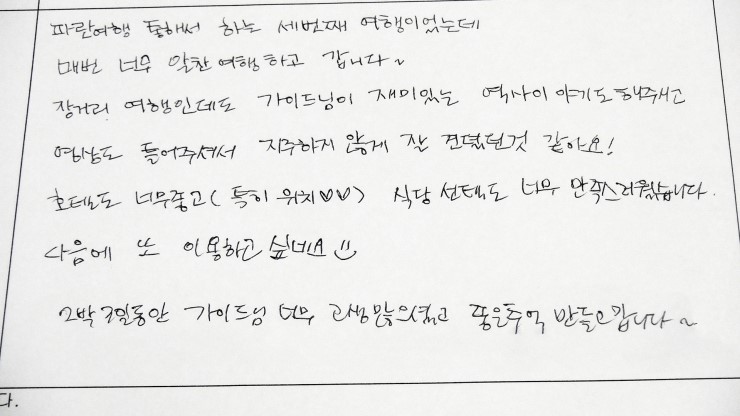 파랑여행 통해서 하는 세번째 여행이었는데
매번 너무 알찬 여행하고 갑니다~
장거리 여행인데도 가이드님이 재미있는 역사이야기도 해주시고
영상도 틀어주셔서 지루하지 않게 잘 견뎠던것 같아요!
호텔도 너무좋고(특히 위치♡♡) 식당 선택도 너무 만족스러웠습니다.
다음에 또 이용하고 싶네요
2박 3일동안 가이드님 너무 고생많으셨고 좋은추억 만들고갑니다~
다.